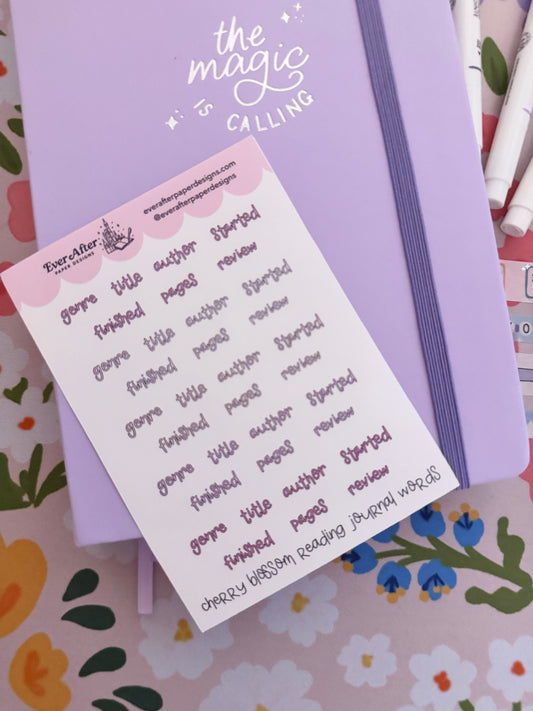 the
magic
IS CALLING
everafterpaperdesigns.com
@everafterpaperdesigns
Ever After
PAPER DESIGNS
genre title author started
finished pages review
genre title author started
finished pages review
genre title author started
finished pages review
genre title author started
finished pages review
genre title author started
finished pages review
cherry blossom reading journal words